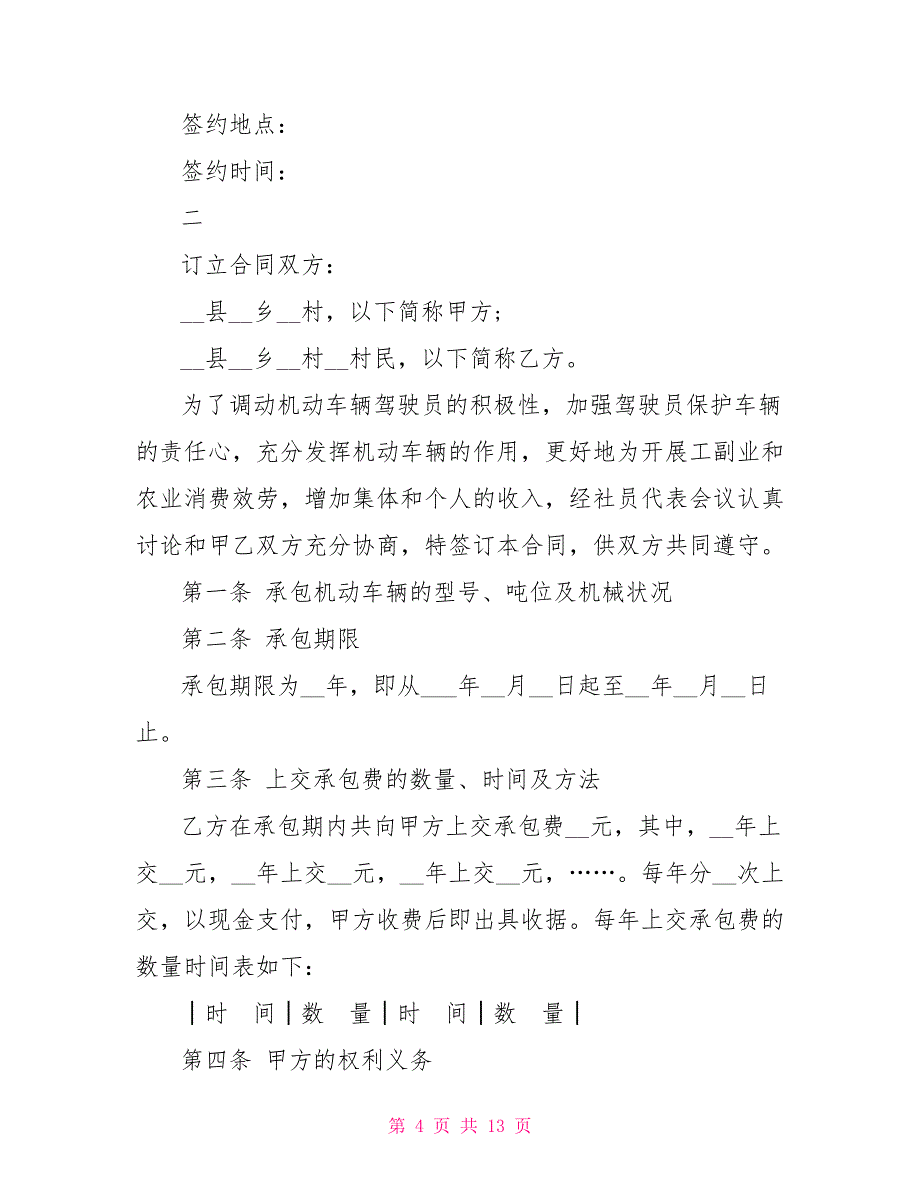 签约地点：
签约时间：
二
订立合同双方：
__县__乡__村，以下简称甲方;
__县__乡__村__村民，以下简称乙方。
为了调动机动车辆驾驶员的积极性，加强驾驶员保护车辆
的责任心，充分发挥机动车辆的作用，更好地为开展工副业和
农业消费效劳，增加集体和个人的收入，经社员代表会议认真
讨论和甲乙双方充分协商，特签订本合同，供双方共同遵守。
第一条 承包机动车辆的型号、吨位及机械状况
第二条 承包期限
承包期限为__年，即从___年__月__日起至__年__月__日
止。
第三条 上交承包费的数量、时间及方法
乙方在承包期内共向甲方上交承包费__元，其中，__年上
交__元，__年上交__元，__年上交__元，……。每年分__次上
交，以现金支付，甲方收费后即出具收据。每年上交承包费的
数量时间表如下：
│时　间│数　量│时　间│数　量│
第四条 甲方的权利义务
第 4 页 共 13 页